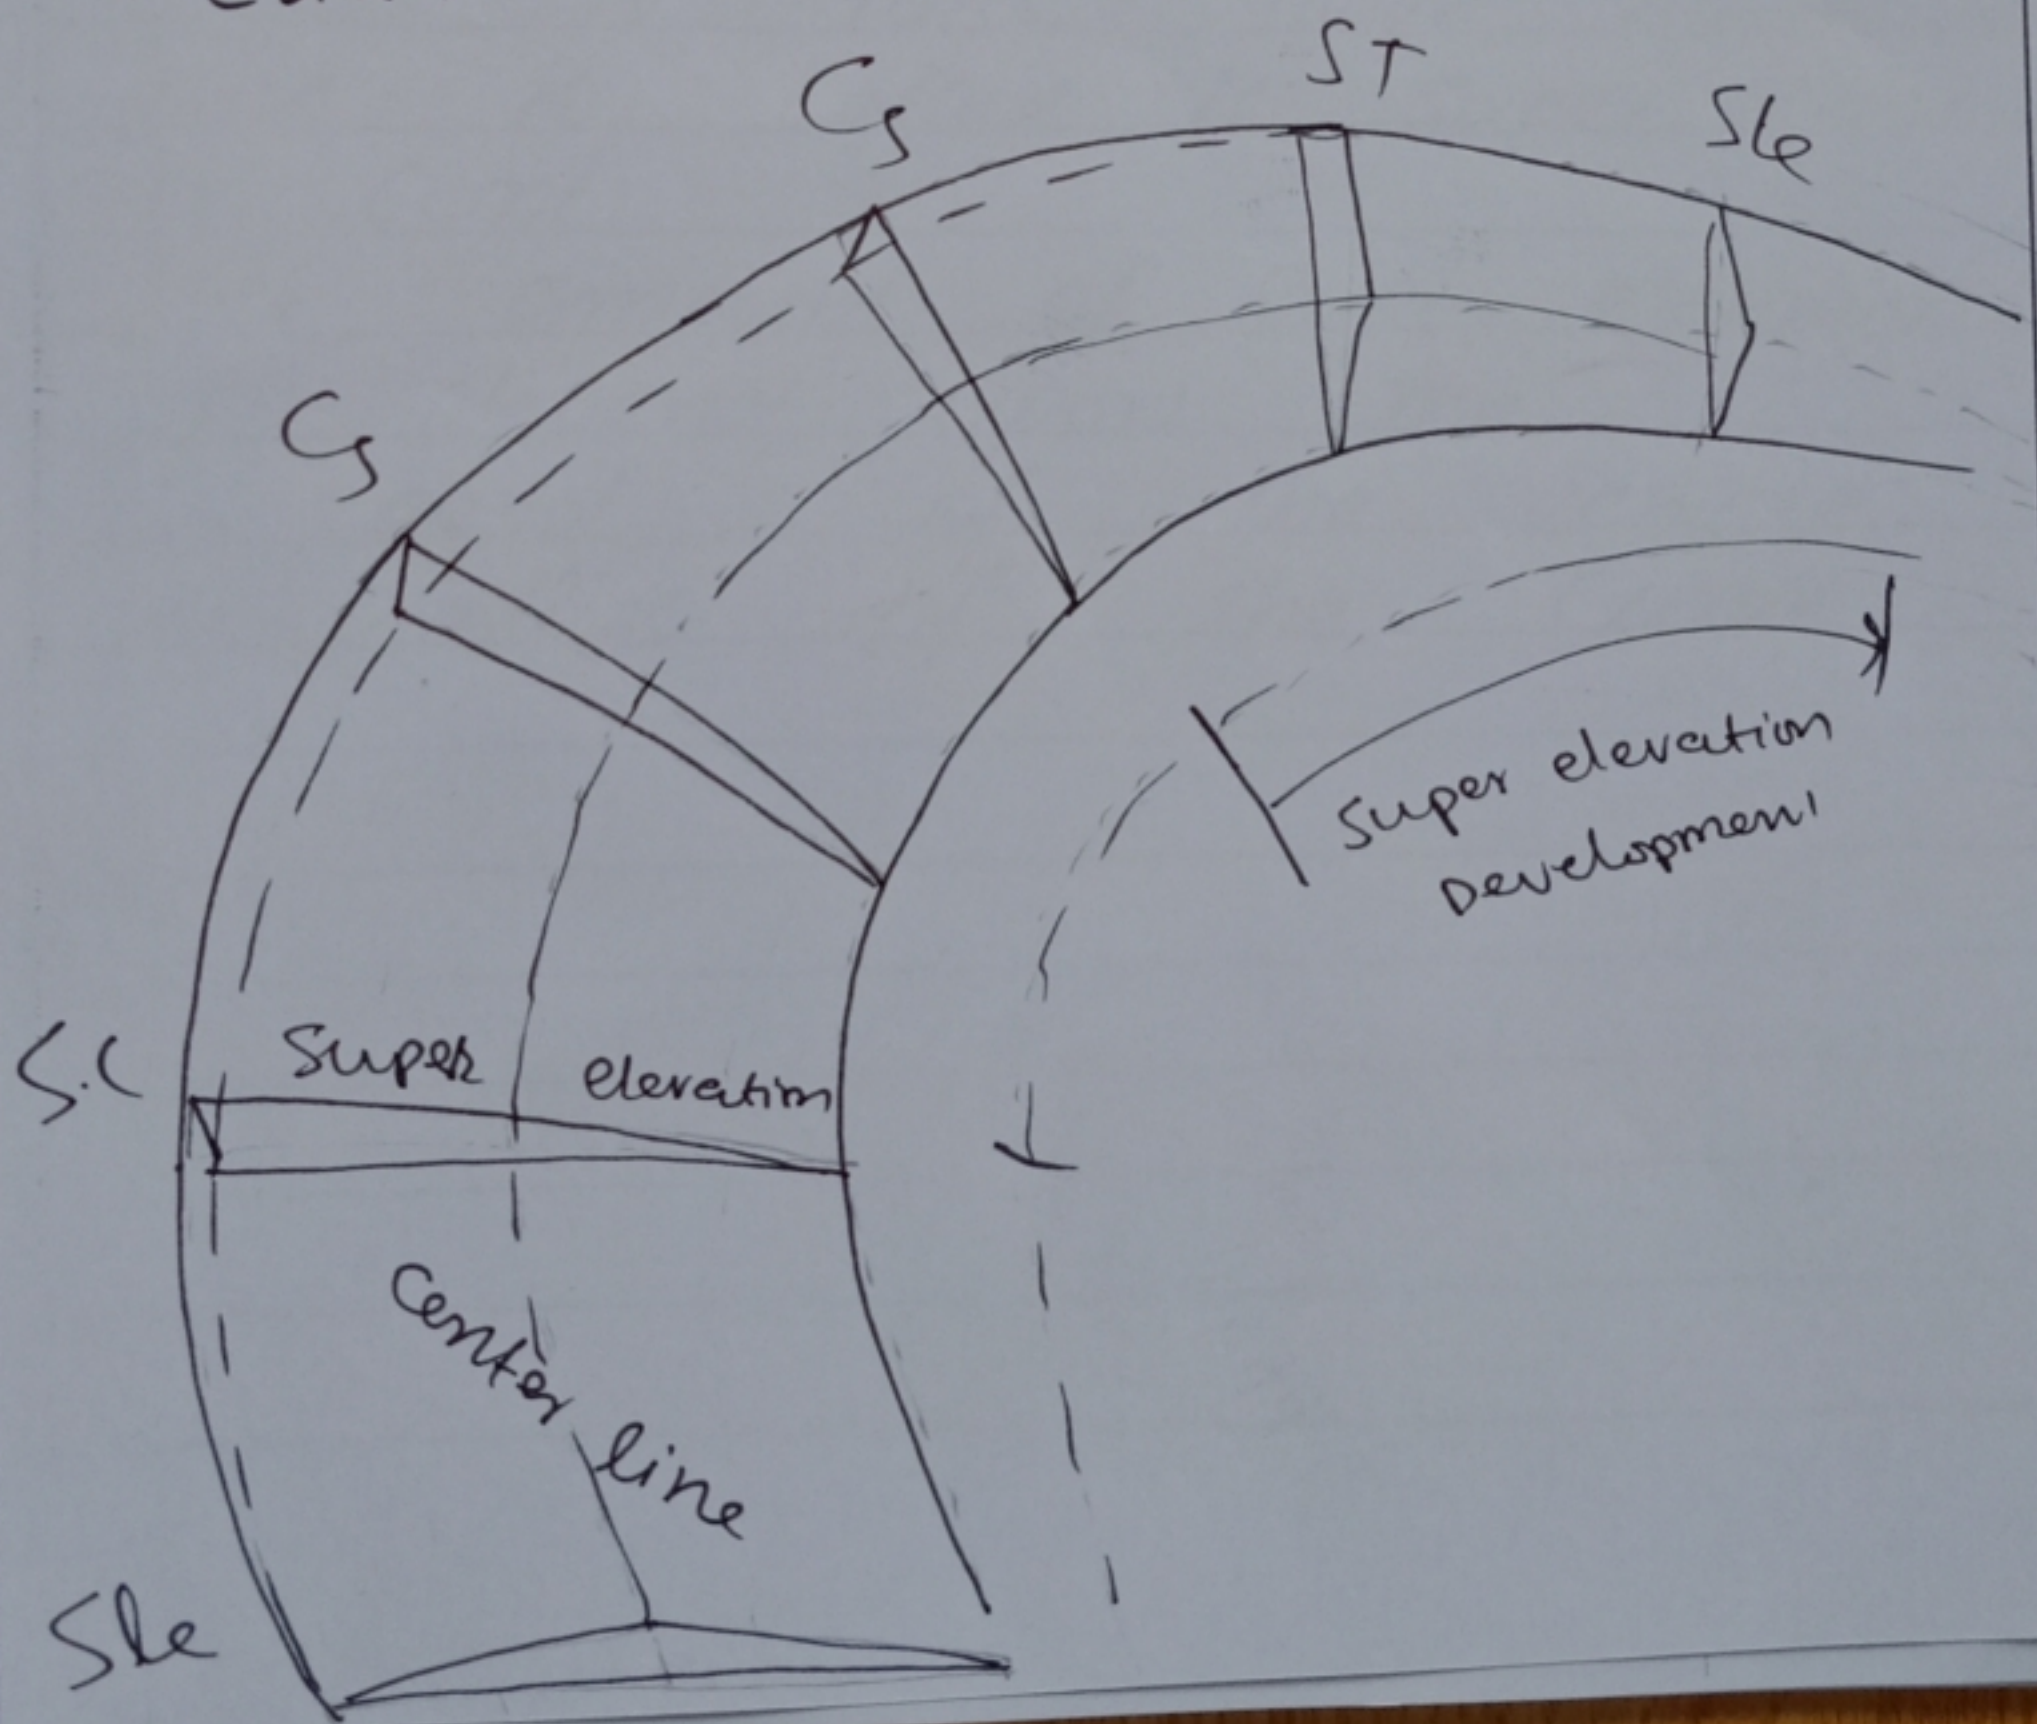 ST
Cs
Sle
Cs
Super elevation
Development
S.C
Super elevation
Center line
Sle